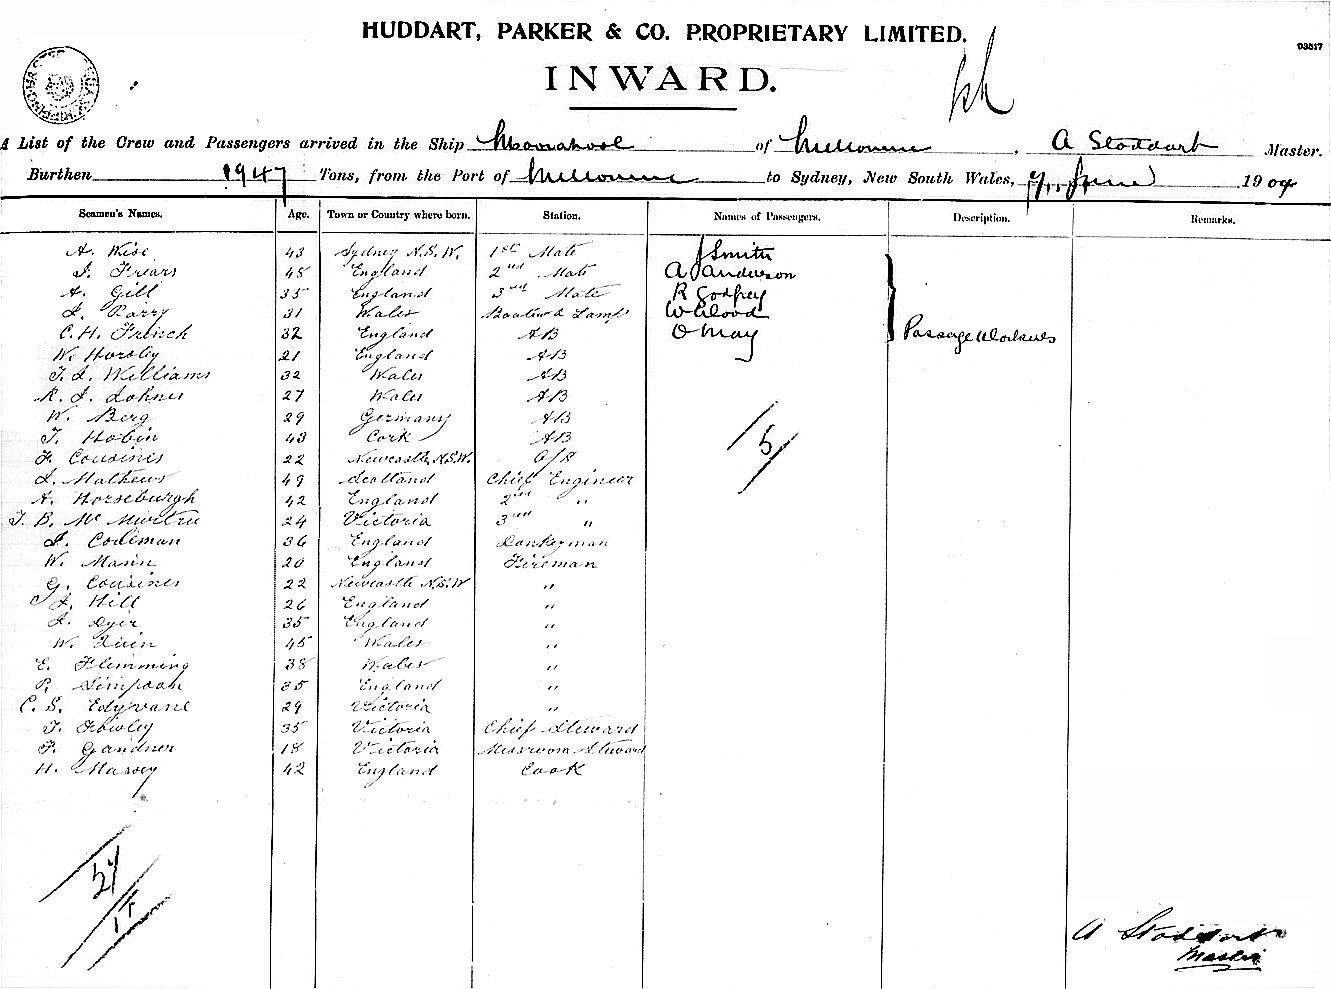 HUDDART, PARKER & CO. PROPRIETARY LIMITED.
93517
INWARD.
A List of the Crew and Passengers arrived in the Ship Moorabool of Melbourne, A Stoddart Master.
Burthen 1947 Tons, from the Port of Melbourne to Sydney, New South Wales, June 1904
Seamen's Names. Age. Town or Country where born. Station. Names of Passengers. Description. Remarks.
A. Wise 43 Sydney N.S.W. 1st Mate J Smith
J. Friars 45 England 2nd Mate A Anderson
A. Gill 35 England 3rd Mate R Godfrey
J. Parry 31 Wales Boatsn & Lamps W Wood
C. H. French 32 England AB O May Passage Workers
W. Horsley 21 England AB
T. J. Williams 32 Wales AB
R. J. Johns 27 Wales AB
W. Berg 29 Germany AB
T. Hobin 43 Cork AB
F. Cousins 22 Newcastle N.S.W. O/S
J. Mathews 49 Scotland Chief Engineer
A. Horseburgh 42 England 2nd "
J. B. Mc Murtrie 24 Victoria 3rd "
J. Coleman 36 England Donkeyman
W. Mann 20 England Fireman
G. Cousins 22 Newcastle N.S.W "
J. Hill 26 England "
J. Dyer 35 England "
W. 45 Wales "
E. Flemming 38 Wales "
P. Simpson 35 England "
C. S. Edyvane 29 Victoria "
T. Fowley 35 Victoria Chief Steward
F. Gardner 18 Victoria Messroom Steward
H. Massey 42 England Cook
5
A Stoddart
Master